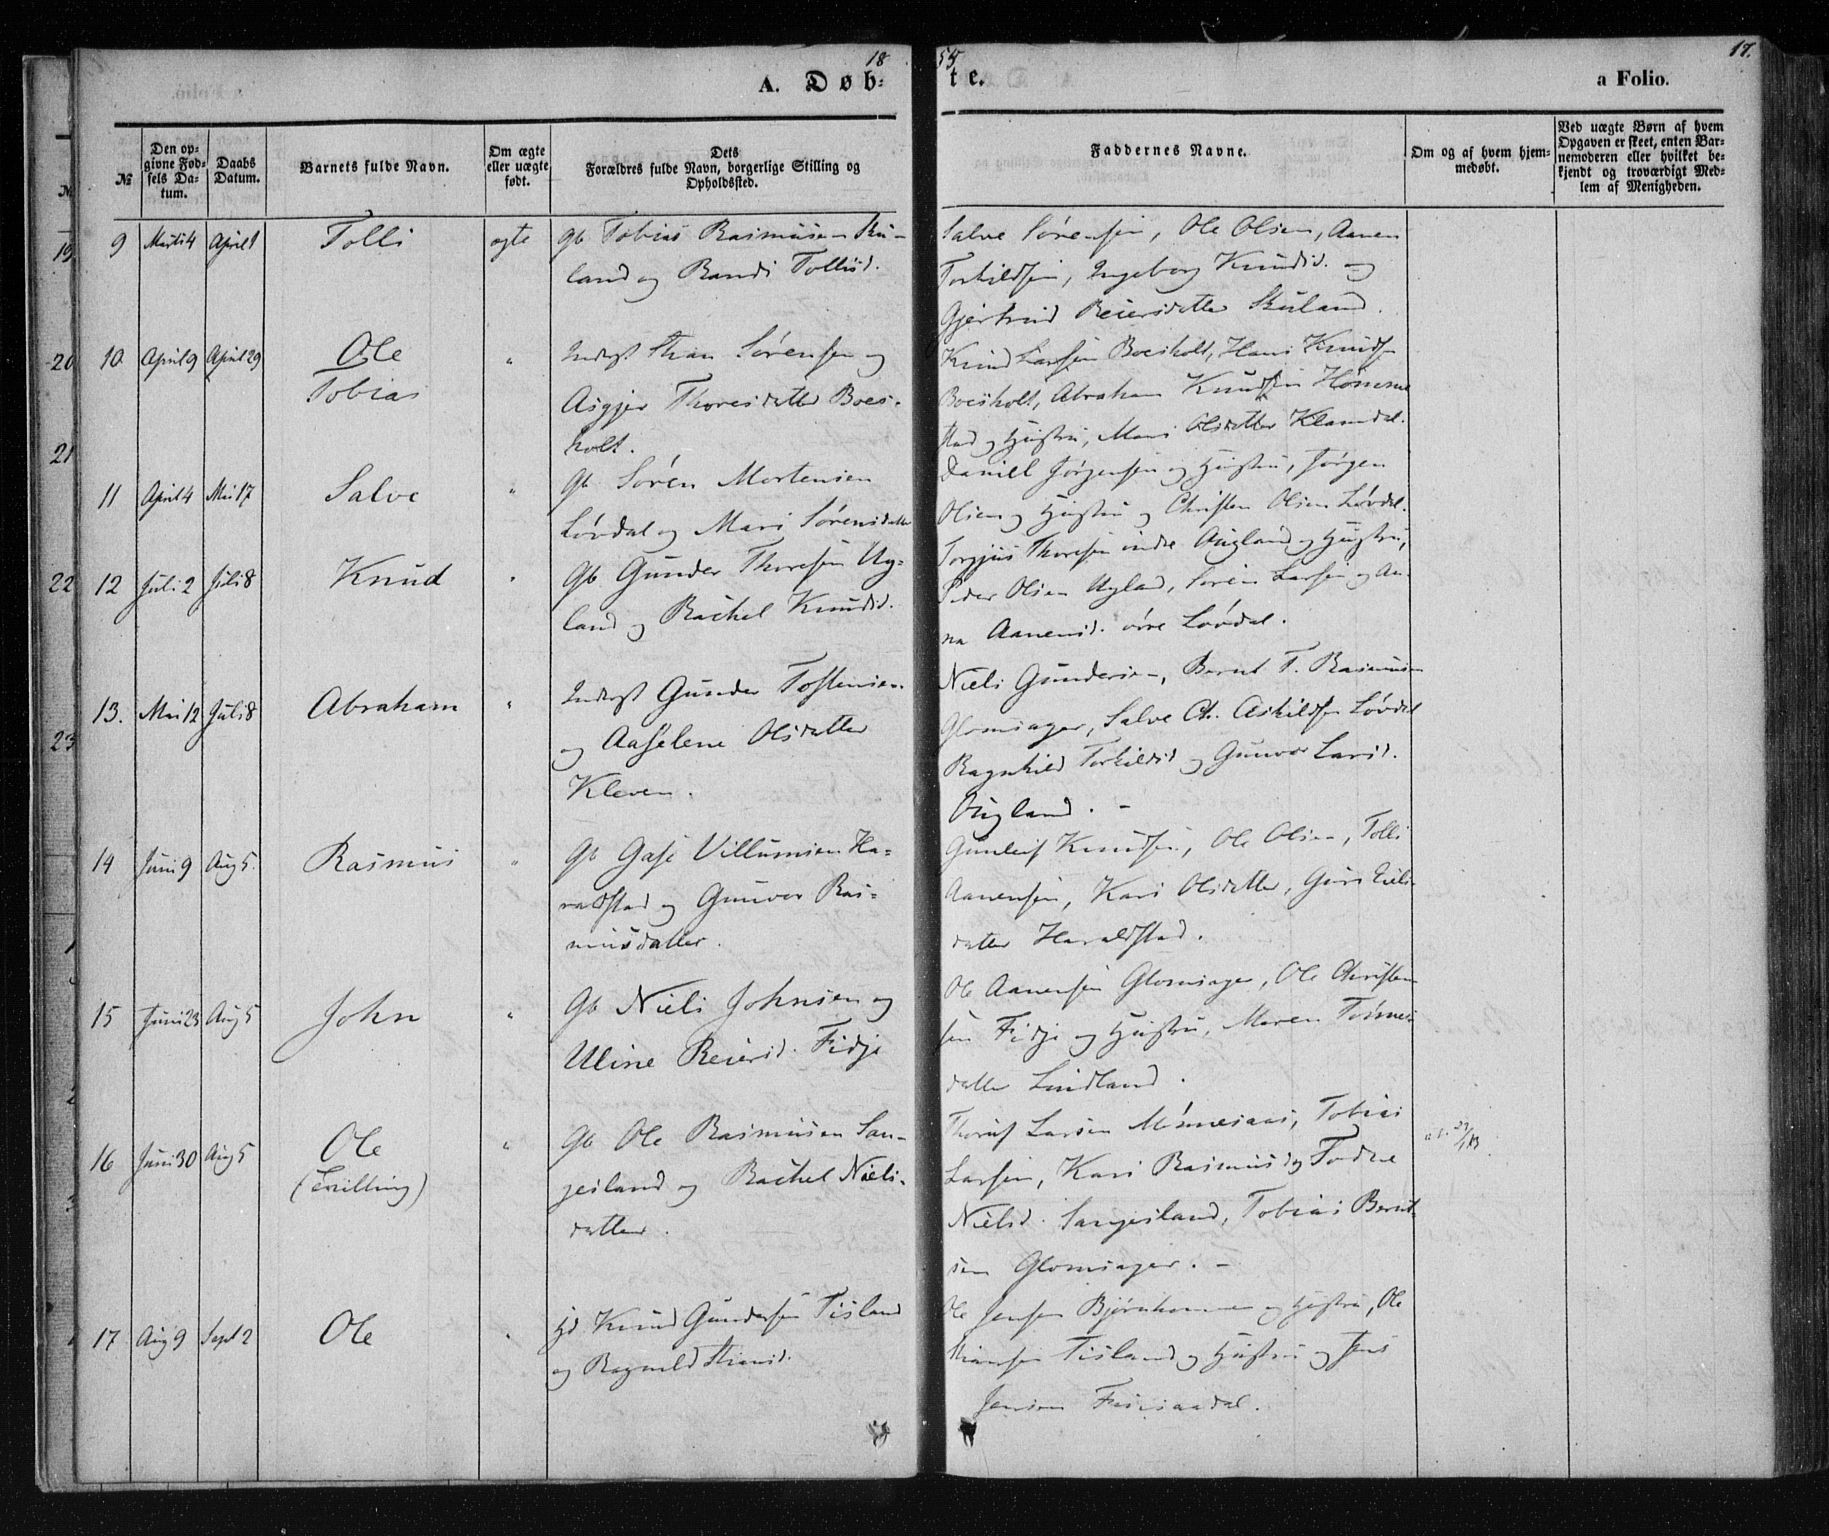 18
55
17.
A. Døb-
te.
a Folio.
№
Den op-
givne Fød-
sels Da-
tum.
Daabs
Datum.
Barnets fulde Navn.
Om ægte
eller uægte
født.
Dets
Forældres fulde Navn, borgerlige Stilling og
Opholdssted.
Faddernes Navne.
Om og af hvem hjem-
medøbt.
Ved uægte Børn af hvem
Opgaven er skeet, enten Bar-
nemoderen eller hvilket be-
kjendt og troværdigt Med-
lem af Menigheden.
19
20
21
22
23
9 Marti 4 April 1 Tolli ægte Gb Tobias Rasmusen Sku-
land og Randi Tollisd.
Salve Sørensen, Ole Olsen, Aanen
Torkildsen, Ingeborg Knudsd. og
Gjertrud Reiersdatter Skuland.
10. April 9 April 29 Ole " Inderst Stian Sørensen og
Tobias
Asgjer Thoresdatter Boes-
holt.
Knud Larsen Boesholt, Hans Knudsen
Boesholt, Abraham Knudsen Homme
stad og Hustru, Mari Olsdatter Klamdal.
11 April 4 Mai 17 Salve " Gb Søren Mortensen
Løvdal og Mari Sørensdatter
Daniel Jørgensen og Hustru, Jørgen
Olsen og Hustru og Christen Olsen Løvdal.
12 Juli 2 Juli 8 Knud " Gb Gunder Thoresen Ug-
land og Rachel Knudsd.
Torgjus Thoresen indre Augland og Hustru,
Peder Olsen Uglad, Søren Larsen og An-
na Aanensd. øvre Løvdal.
13. Mai 12 Juli 8 Abraham " Inderst Gunder Tostensen
og Aaselene Olsdatter
Kleven.
Niels Gundersen, Bernt T. Rasmusen
Glomsager, Salve Ch. Askildsen Løvdal
Ragnhild Torkildsd og Gunvor Larsd.
Augland. -
14 Juni 9 Aug 5. Rasmus " Gb Gase Villumsen Ha-
raldstad og Gunvor Ras-
musdatter.
Gunleif Knudsen, Ole Olsen, Tolli
Aanensen, Kari Olsdatter, Guri Niels-
datter Haraldstad.
15 Juni 23 Aug 5 John " Gb Niels Johnsen og
Uline Reiersd. Fidje
Ole Aanensen Glomsager, Ole Christen
sen Fidje og Hustru, Maren Tønnes
datter Lindland.
16 Juni 30 Aug 5 Ole " Gb Ole Rasmusen San-
(Tvilling)
jesland og Rachel Niels-
datter.
Thorus Larsen Mønnesaas, Tobias
Larsen, Kari Rasmusd og Todne
Nielsd. Sangesland, Tobias Bernt
sen Glomsager. -
17 Aug 9 Sept 2 Ole " Hd Knud Gundersen Tisland
og Ragnild Stiansd.
Ole Jensen Bjørnkommen og Hustru, Ole
Stiansen Tisland og Hustru og Jens
Jensen